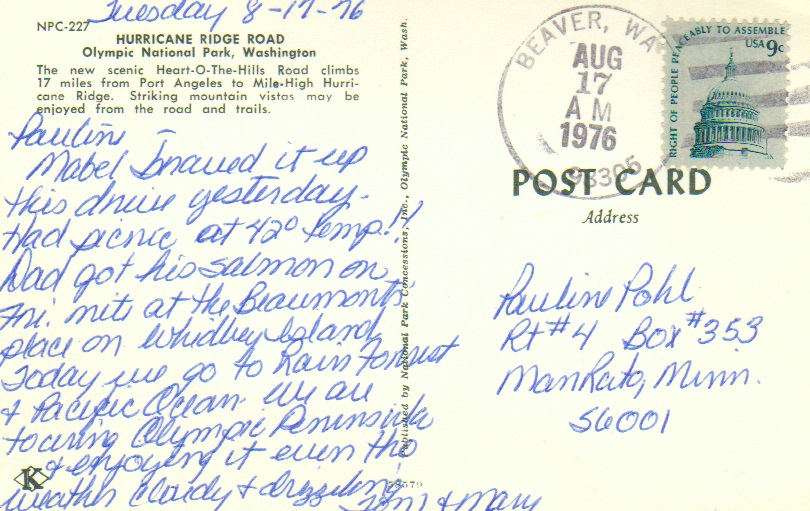 Tuesday 8-17-76
NPC-227
HURRICANE RIDGE ROAD
Olympic National Park, Washington
The new scenic Heart-O-The-Hills Road climbs
17 miles from Port Angeles to Mile-High Hurri-
cane Ridge. Striking mountain vistas may be
enjoyed from the road and trails.
Pauline -
Mabel I braved it up
this drive yesterday.
Had picnic at 42° temp!!
Dad got his salmon on
Fri. nite at the Beaumonts
place on Whidbey Island
Today we go to Rain Forrest
& Pacific Ocean. We are
touring Olympic Peninsula
& enjoying it even tho
weather cloudy & drizzeling
Tom & Mary
K
Published by National Park Concessions, Inc., Olympic National Park, Wash.
BEAVER, WA
AUG
17
AM
1976
98305
RIGHT OF PEOPLE PEACEABLY TO ASSEMBLE
USA 9c
POST CARD
Address
Pauline Pohl
Rt #4 Box #353
Mankato, Minn.
56001